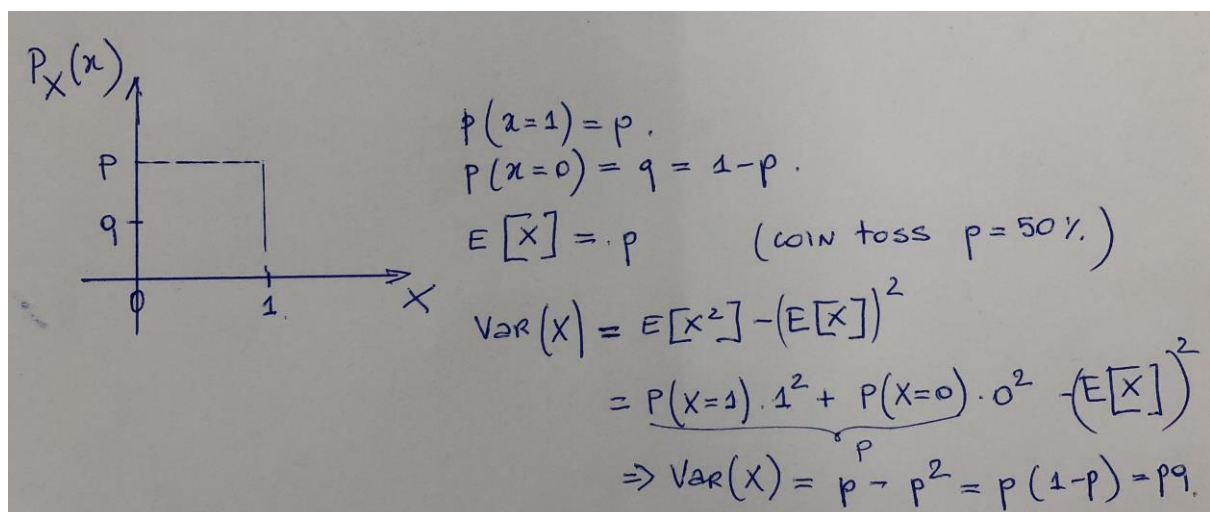 P_X(x)
p
q
0 1 X
p(x=1) = p.
p(x=0) = q = 1-p.
E[X] = p (COIN toss p = 50%)
Var(X) = E[X²] - (E[X])²
= P(X=1).1² + P(X=0).0² - (E[X])²
p
⇒ Var(X) = p - p² = p(1-p) = pq.